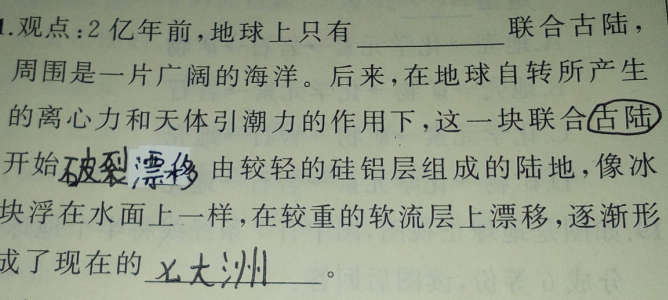 1.观点:2亿年前,地球上只有______联合古陆,
周围是一片广阔的海洋。后来,在地球自转所产生
的离心力和天体引潮力的作用下,这一块联合古陆
开始破裂漂移由较轻的硅铝层组成的陆地,像冰
块浮在水面上一样,在较重的软流层上漂移,逐渐形
成了现在的 七大洲 。